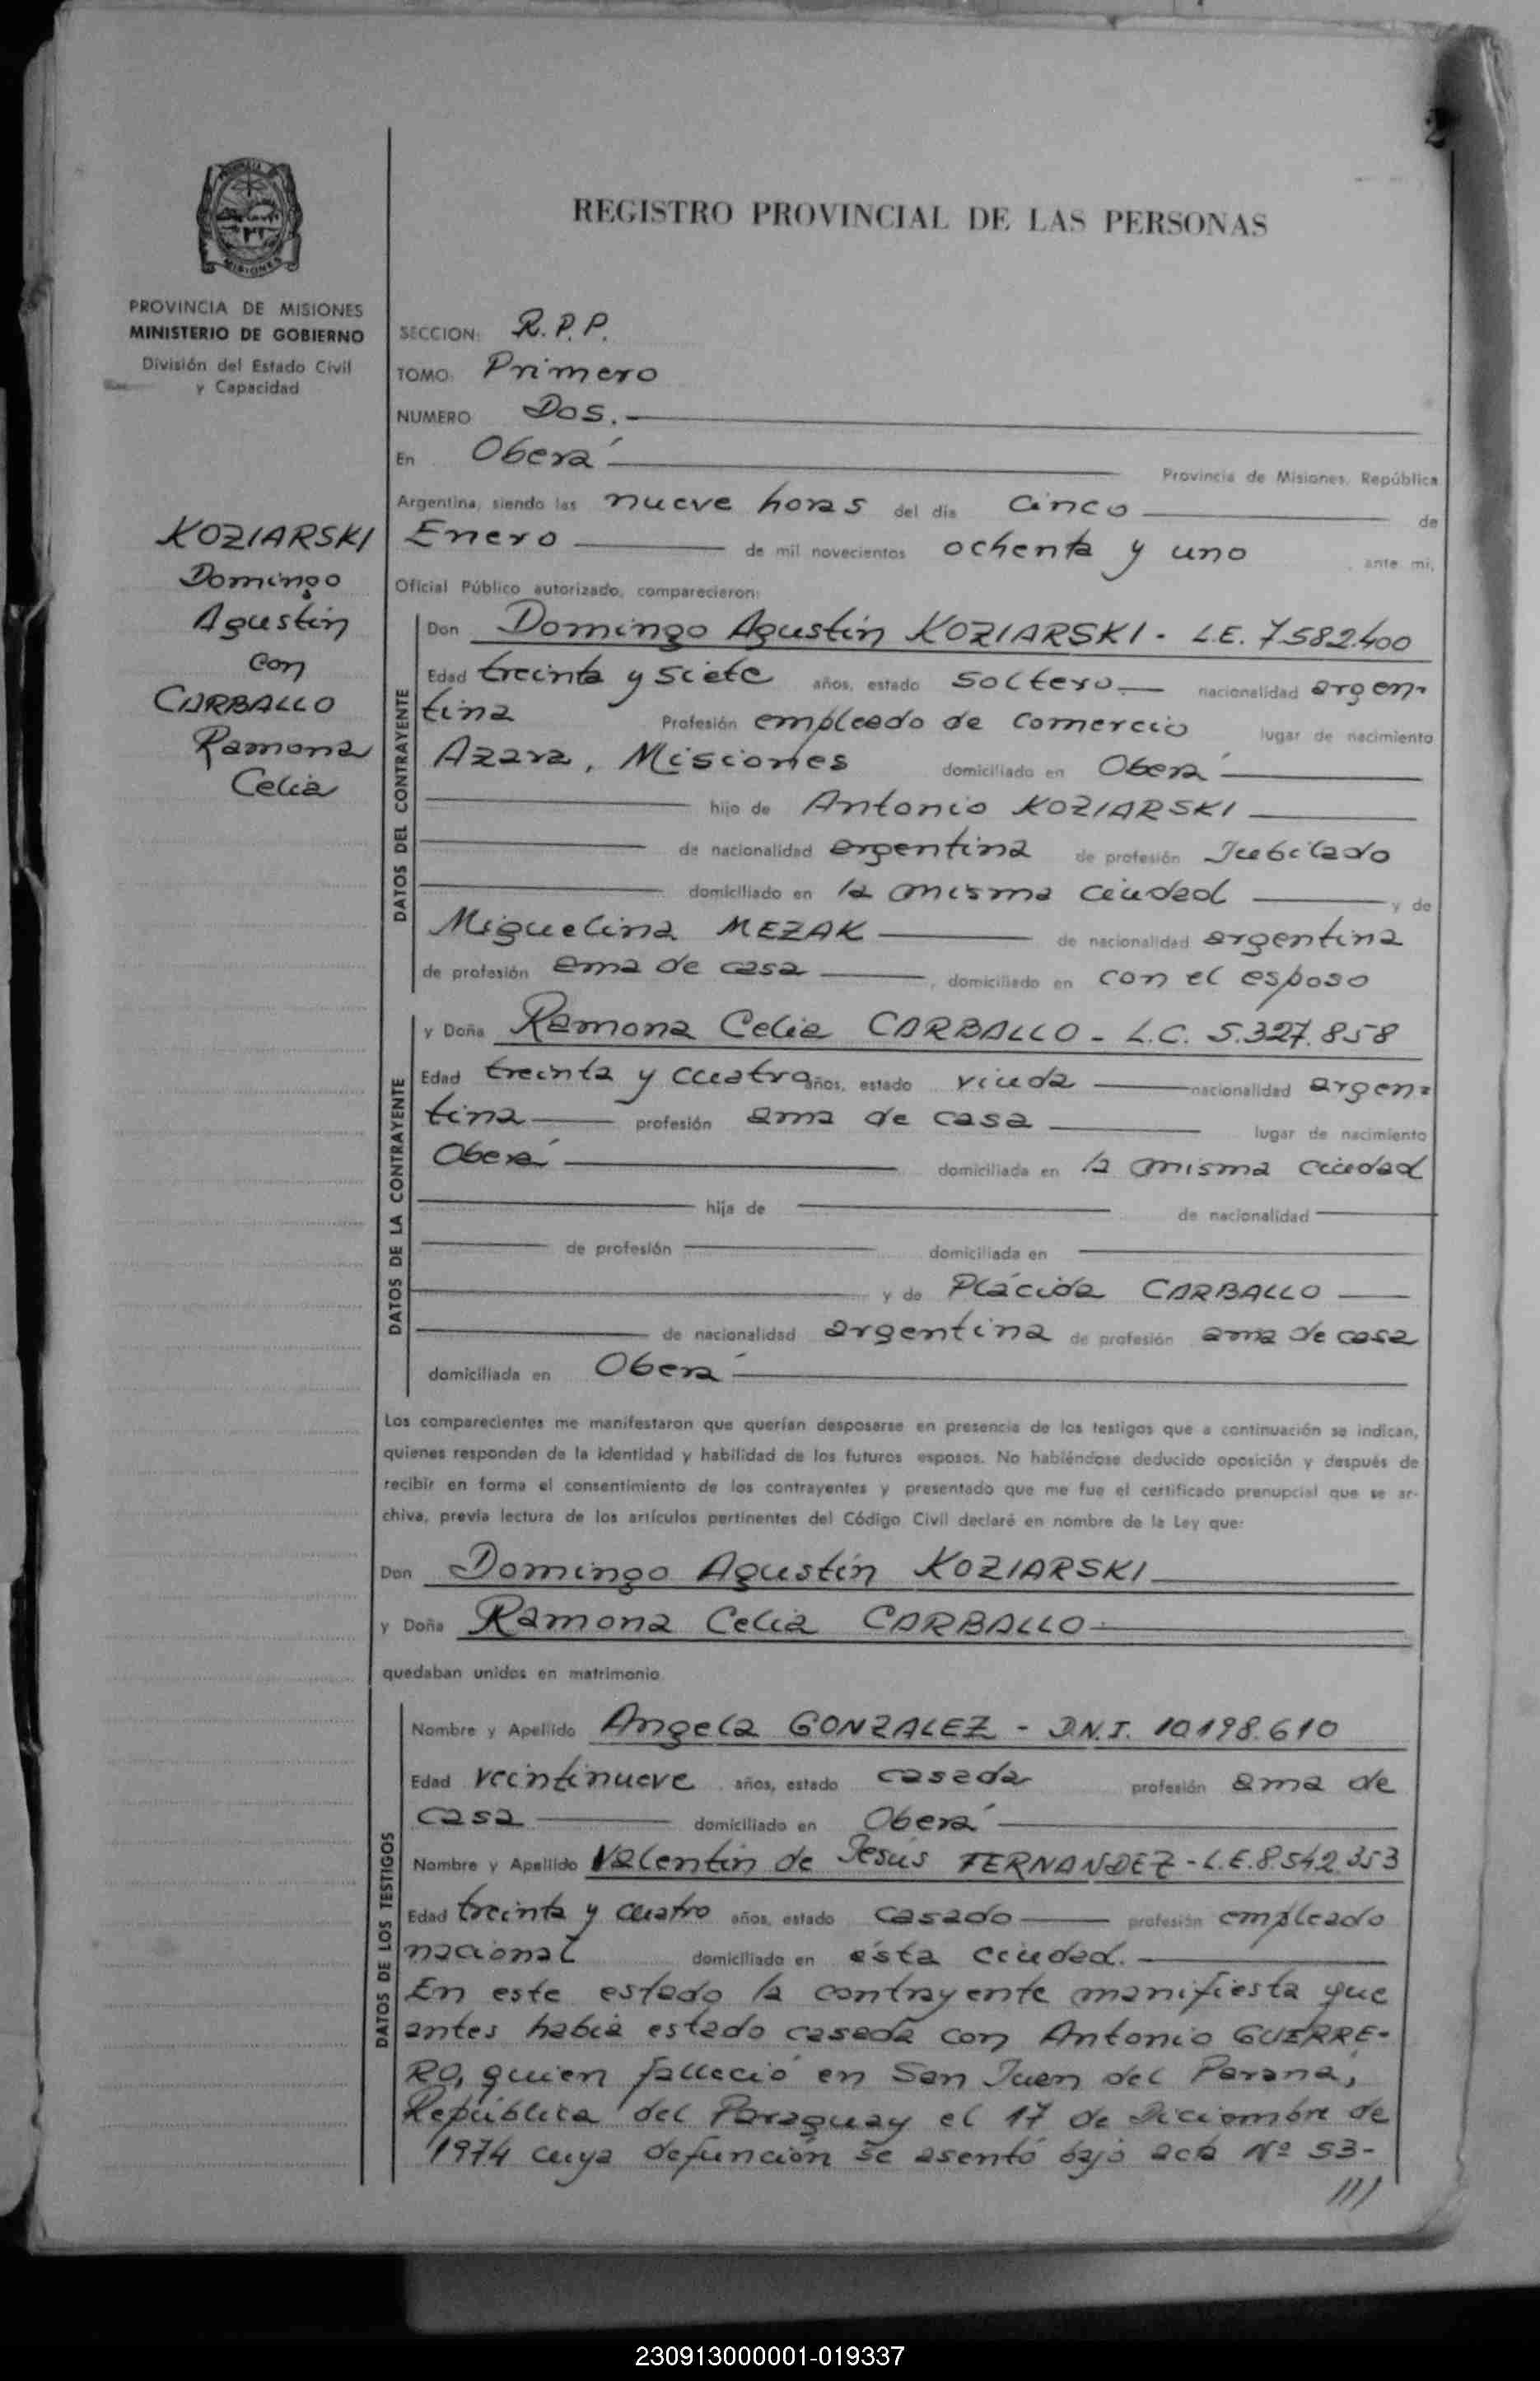 2
REGISTRO PROVINCIAL DE LAS PERSONAS
PROVINCIA DE MISIONES
MINISTERIO DE GOBIERNO
División del Estado Civil
y Capacidad
KOZIARSKI
Domingo
Agustín
con
CARBALLO
Ramona
Celia
SECCION: R.P.P.
TOMO: Primero
NUMERO Dos.
En Oberá Provincia de Misiones, República
Argentina, siendo las nueve horas del día Cinco de
Enero de mil novecientos ochenta y uno, ante mí,
Oficial Público autorizado, comparecieron:
DATOS DEL CONTRAYENTE
Don Domingo Agustín KOZIARSKI - L.E. 7.582.400
Edad treinta y siete años, estado soltero nacionalidad argen-
tina Profesión empleado de comercio lugar de nacimiento
Azara, Misiones domiciliado en Oberá
hijo de Antonio KOZIARSKI
de nacionalidad argentina de profesión Jubilado
domiciliado en la misma ciudad y de
Miguelina MEZAK de nacionalidad argentina
de profesión ama de casa, domiciliado en con el esposo
DATOS DE LA CONTRAYENTE
y Doña Ramona Celia CARBALLO - L.C. 5.327.858
Edad treinta y cuatro años, estado viuda nacionalidad argen=
tina profesión ama de casa lugar de nacimiento
Oberá domiciliada en la misma ciudad
hija de de nacionalidad
de profesión domiciliada en
y de Plácida CARBALLO
de nacionalidad argentina de profesión ama de casa
domiciliada en Oberá
Los comparecientes me manifestaron que querían desposarse en presencia de los testigos que a continuación se indican,
quienes responden de la identidad y habilidad de los futuros esposos. No habiéndose deducido oposición y después de
recibir en forma el consentimiento de los contrayentes y presentado que me fue el certificado prenupcial que se ar-
chiva, previa lectura de los artículos pertinentes del Código Civil declaré en nombre de la Ley que:
Don Domingo Agustín KOZIARSKI
y Doña Ramona Celia CARBALLO
quedaban unidos en matrimonio
DATOS DE LOS TESTIGOS
Nombre y Apellido Angela GONZALEZ - D.N.I. 10.198.610
Edad veintinueve años, estado casada profesión ama de
casa domiciliado en Oberá
Nombre y Apellido Valentín de Jesús FERNANDEZ - L.E. 8.542.353
Edad treinta y cuatro años, estado casado profesión empleado
nacional domiciliado en ésta ciudad.
En este estado la contrayente manifiesta que
antes había estado casada con Antonio GUERRE-
RO, quien falleció en San Juan del Paraná,
República del Paraguay el 17 de Diciembre de
1974 cuya defunción se asentó bajo acta Nº 53-
///
230913000001-019337